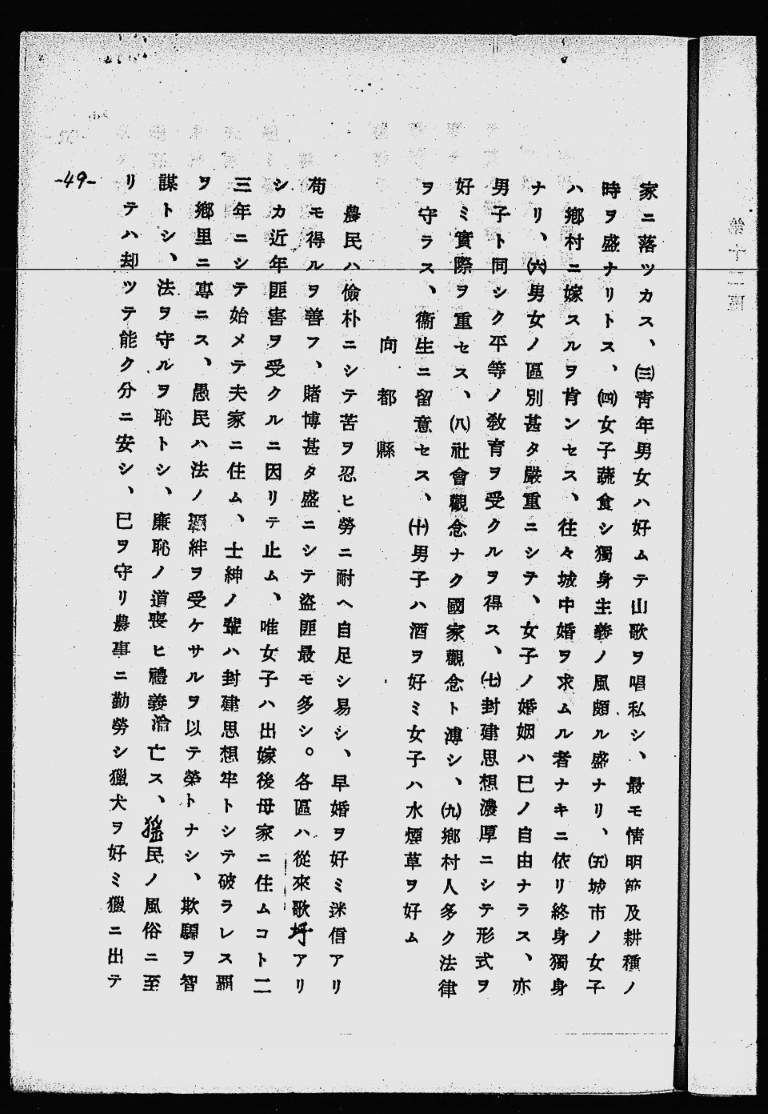 家ニ落ツカス、㈢靑年男女ハ好ムテ山歌ヲ唱私シ、最モ情明節及耕種ノ
時ヲ盛ナリトス、㈣女子蔬食シ獨身主義ノ風頗ル盛ナリ、㈤城市ノ女子
ハ鄕村ニ嫁スルヲ肯ンセス、往々城中婚ヲ求ムル者ナキニ依リ終身獨身
ナリ、㈥男女ノ區別甚タ嚴重ニシテ、女子ノ婚姻ハ巳ノ自由ナラス、亦
男子ト同シク平等ノ敎育ヲ受クルヲ得ス、㈦封建思想濃厚ニシテ形式ヲ
好ミ實際ヲ重セス、㈧社會觀念ナク國家觀念ト溥シ、㈨鄕村人多ク法律
ヲ守ラス、衞生ニ留意セス、㈩男子ハ酒ヲ好ミ女子ハ水煙草ヲ好ム
向都縣
農民ハ儉朴ニシテ苦ヲ忍ヒ勞ニ耐ヘ自足シ易シ、早婚ヲ好ミ迷信アリ
苟モ得ルヲ善フ、賭博甚タ盛ニシテ盜匪最モ多シ。各區ハ從來歌圩アリ
シカ近年匪害ヲ受クルニ因リテ止ム、唯女子ハ出嫁後母家ニ住ムコト二
三年ニシテ始メテ夫家ニ住ム、士紳ノ輩ハ封建思想牢トシテ破ラレス覇
ヲ鄕里ニ專ニス、愚民ハ法ノ絆ヲ受ケサルヲ以テ榮トナシ、欺騙ヲ智
謀トシ、法ヲ守ルヲ恥トシ、廉恥ノ道喪ヒ禮義淪亡ス、猺民ノ風俗ニ至
リテハ却ツテ能ク分ニ安シ、巳ヲ守リ農事ニ勤勞シ獵犬ヲ好ミ獵ニ出テ
-49-
第十二區